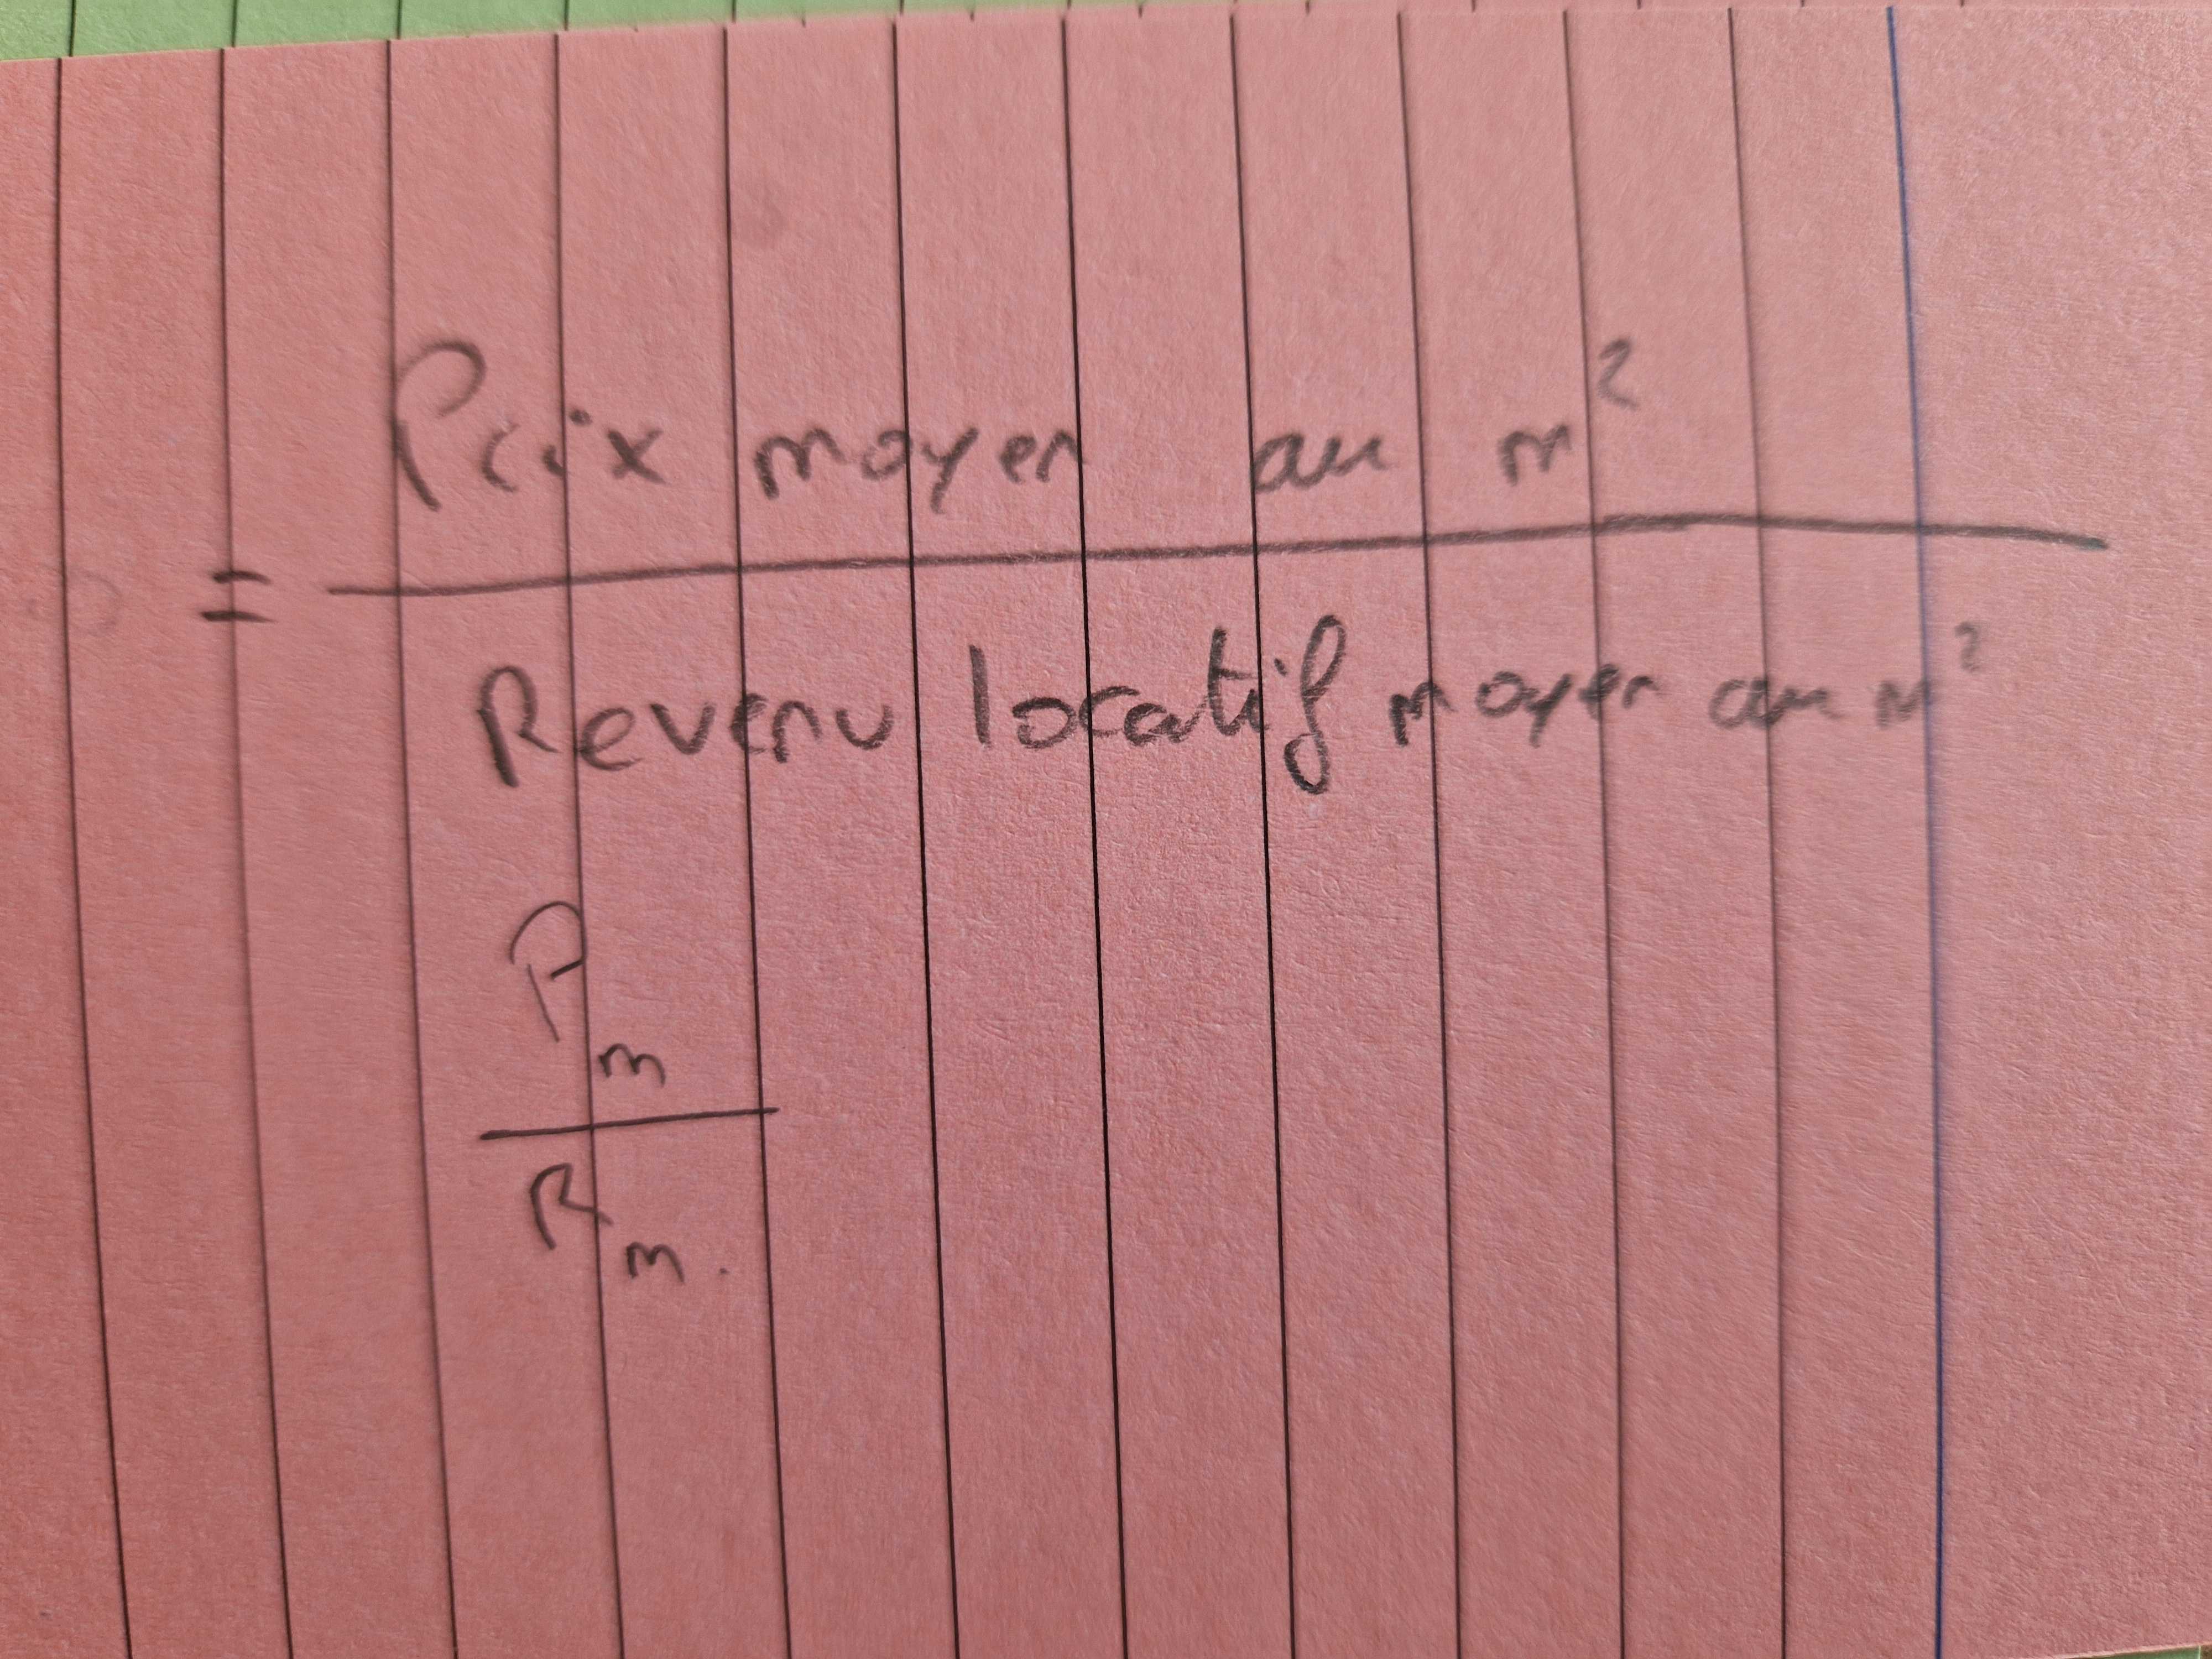 Prix moyen au m²
=
Revenu locatif moyen au m²
Pm
Rm.